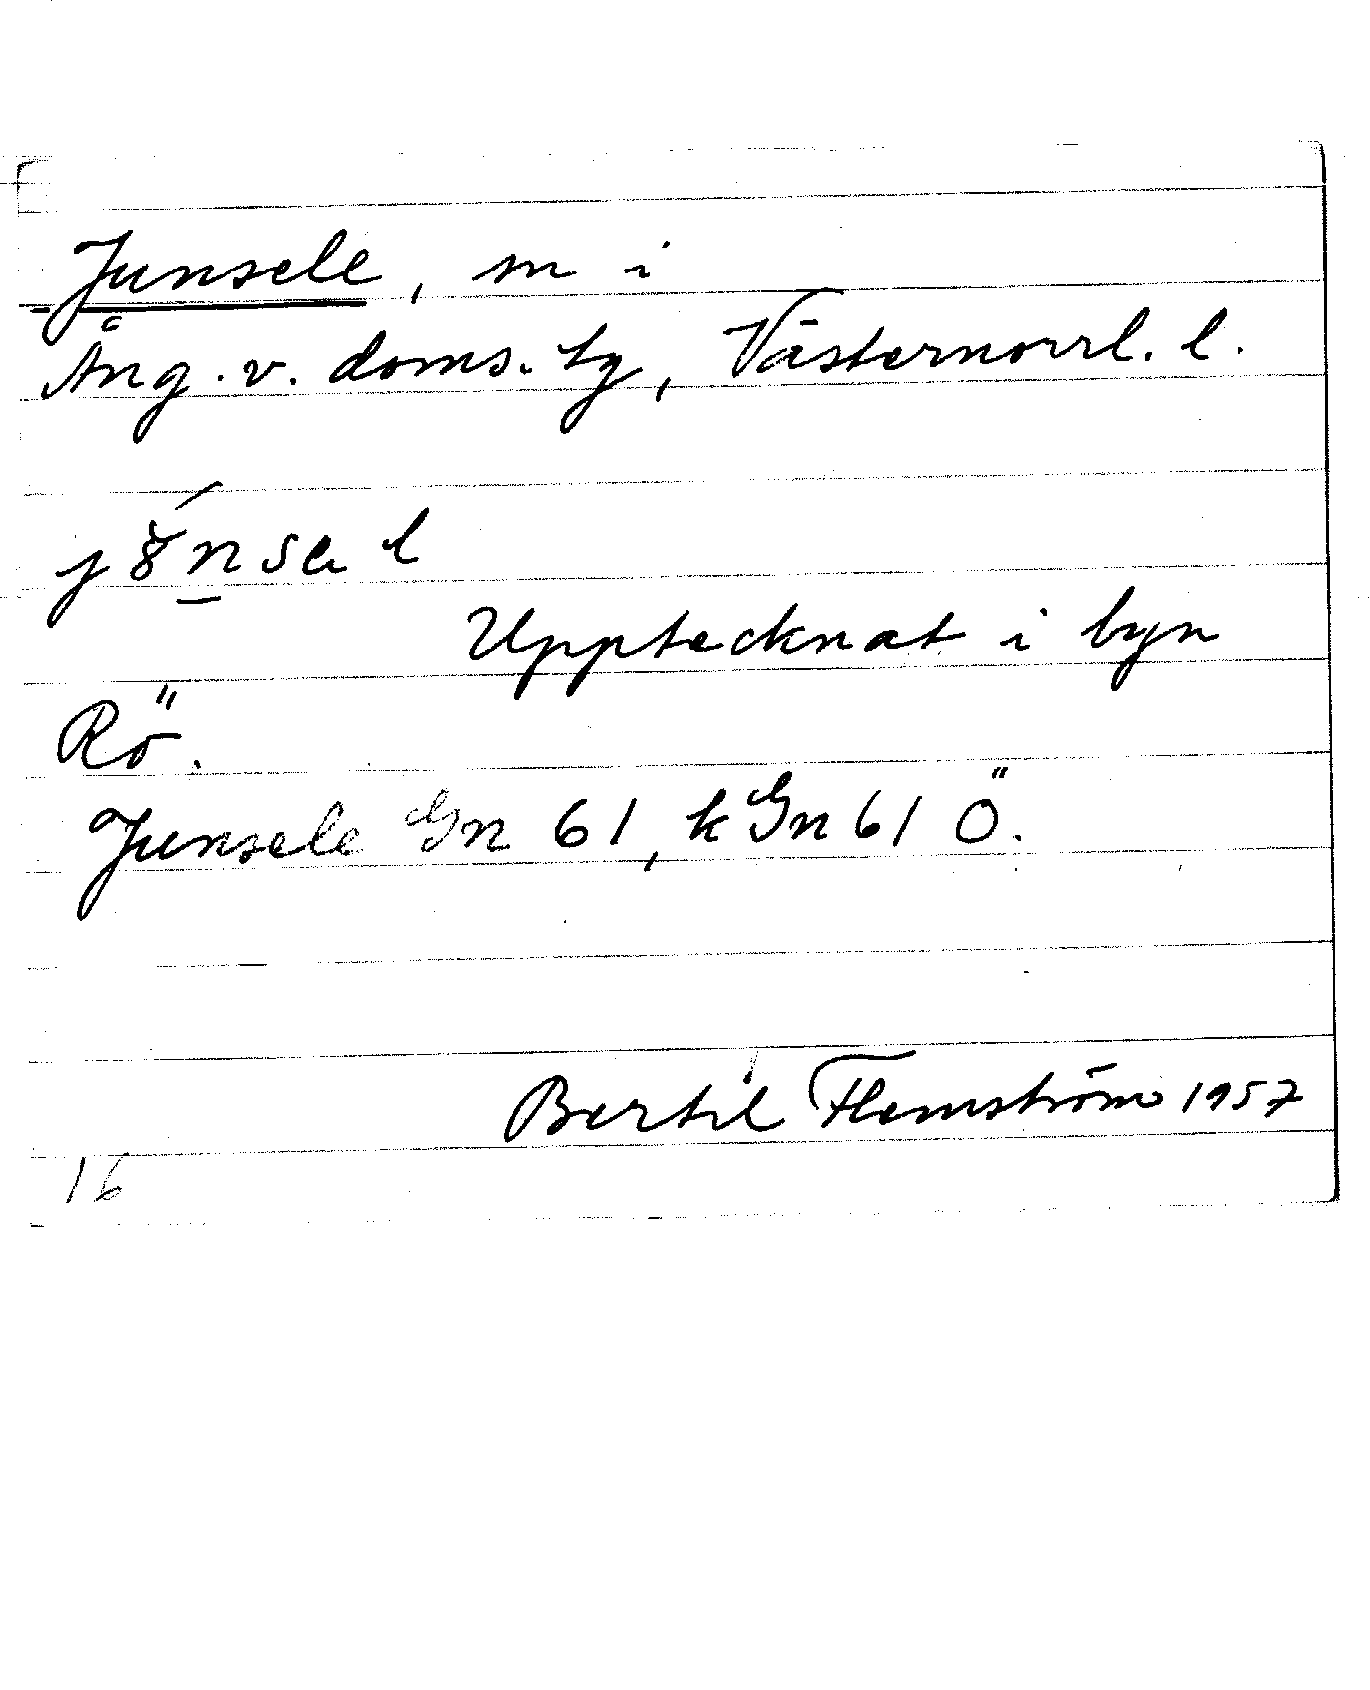 Junsele, sn i
Ång. v. doms. tg, Västernorrl. l.
Upptecknat i byn
Rö.
Junsele Gn 61, kGn 61 Ö.
Bertil Flemström 1957
16